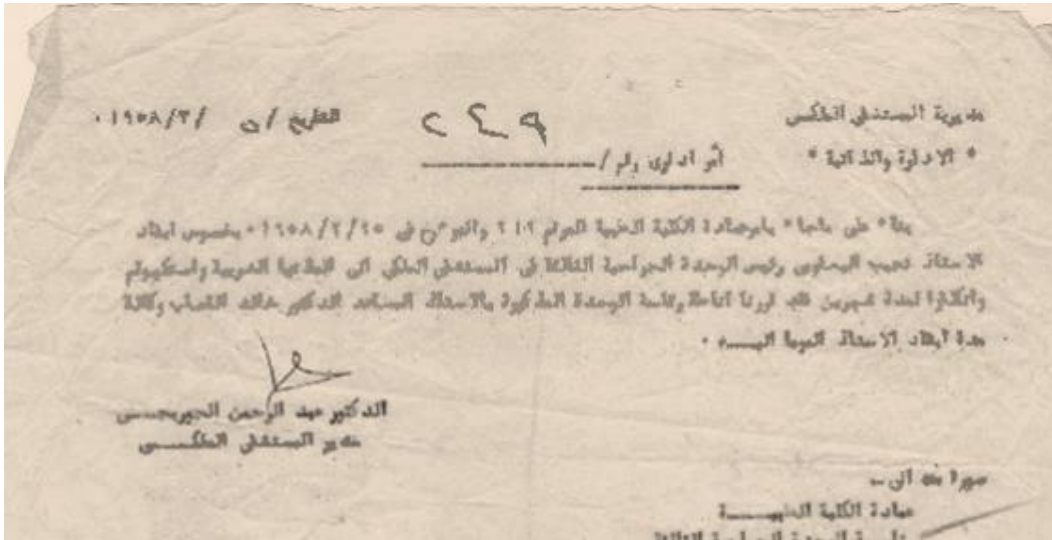 مديرية المستشفى الملكي
" الادارة والذاتية "
التاريخ / ٥ /٣/١٩٥٨ ٠
٢٤٩
أمر اداري رقم /
بناء على ماجاء بامر عمادة الكلية الطبية المرقم والمؤرخ في ١٩٥٨/٢/٢٥ بخصوص ايفاد
الاستاذ نجيب اليعقوبي رئيس الوحدة الجراحية الثالثة في المستشفى الملكي الى المانيا الغربية واستكهولم
وانكلترا لمدة شهرين فقد قررنا اناطة رئاسة الوحدة المذكورة بالاستاذ المساعد الدكتور خالد القصاب وكالة
مدة ايفاد الاستاذ المومأ اليـــه ٠
الدكتور عبد الرحمن الجوربجـــي
مدير المستشفى الملكـــي
صورة منه الى ــ
عمادة الكلية الطبيـــة
رئاسة الوحدة الجراحية الثالثة